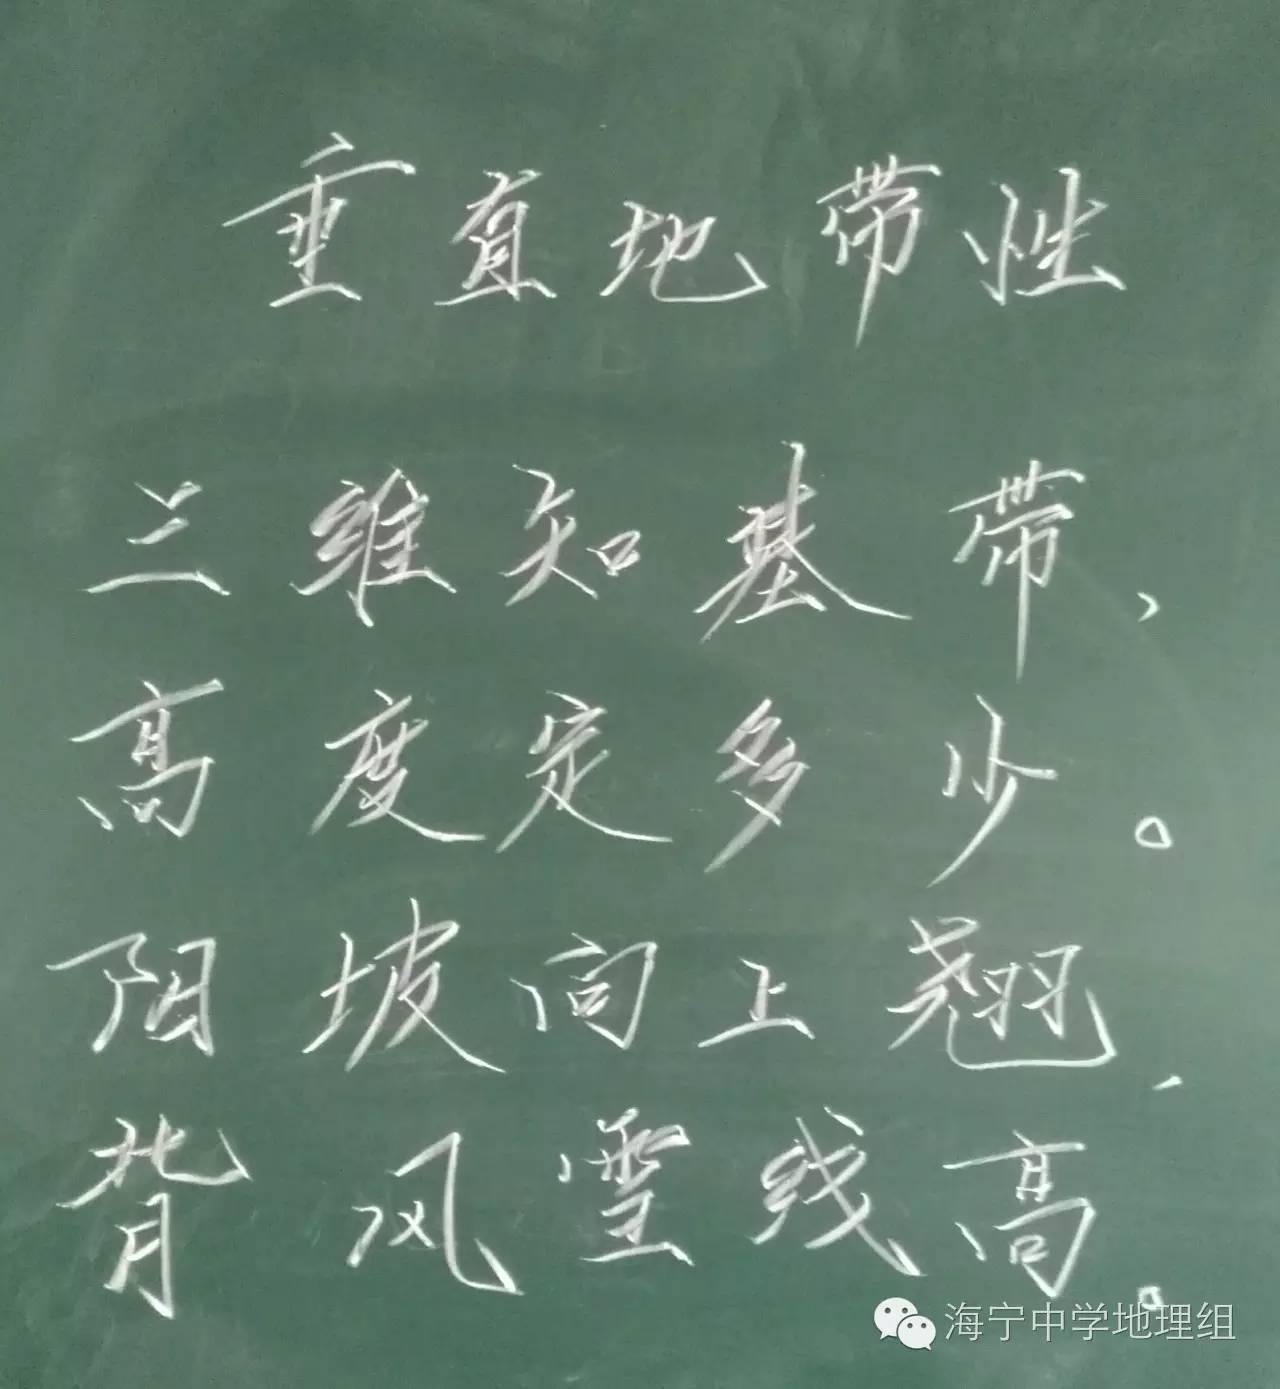 垂直地带性
三维知基带，
高度定多少。
阳坡向上翘，
背风雪线高。
海宁中学地理组